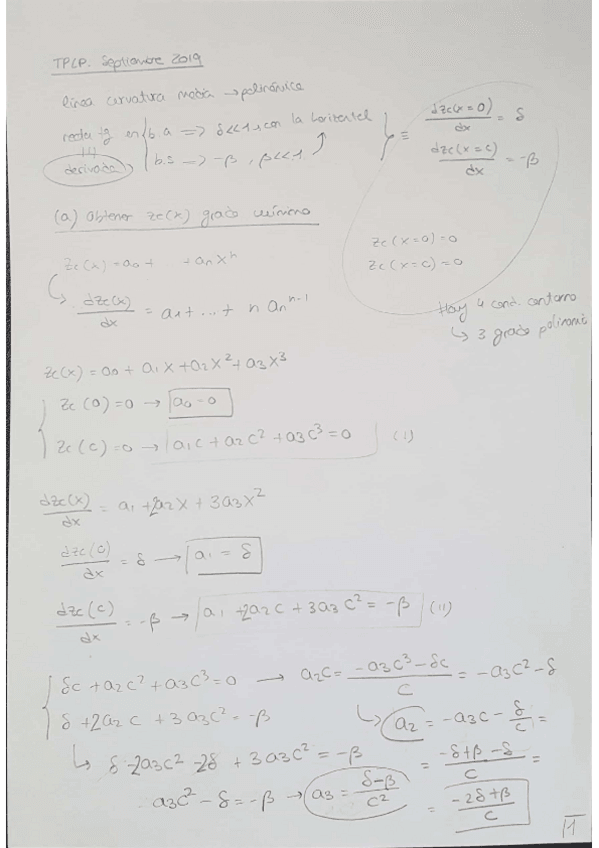 TPLP. Septiembre 2019
línea curvatura media → polinómica
recta tg en { b.a => δ<<1 con la horizontal } ≡ dzc(x=0)/dx = δ
derivada { b.s => -β, β<<1 dzc(x=c)/dx = -β
(a.) Obtener zc(x) grado mínimo
zc(x=0)=0
zc(x=c)=0
zc(x)=a0+ +anx^n
dzc(x)/dx = a1+...+ n an^n-1
Hay 4 cond. contorno
↳ 3 grado polinomi
zc(x)=a0+a1x+a2x²+a3x³
{ zc(0)=0 → a0=0
zc(c)=0 → a1c+a2c²+a3c³=0 (I)
dzc(x)/dx = a1+2a2x+3a3x²
dzc(0)/dx = δ → a1=δ
dzc(c)/dx = -β → a1+2a2c+3a3c²=-β (II)
{ δc+a2c²+a3c³=0 → a2c= (-a3c³-δc)/c = -a3c²-δ
δ+2a2c+3a3c²=-β ↳ a2=-a3c-δ/c=
↳ δ-2a3c²-2δ+3a3c²=-β = (-δ+β-δ)/c =
a3c²-δ=-β → a3= (δ-β)/c² = (-2δ+β)/c
1